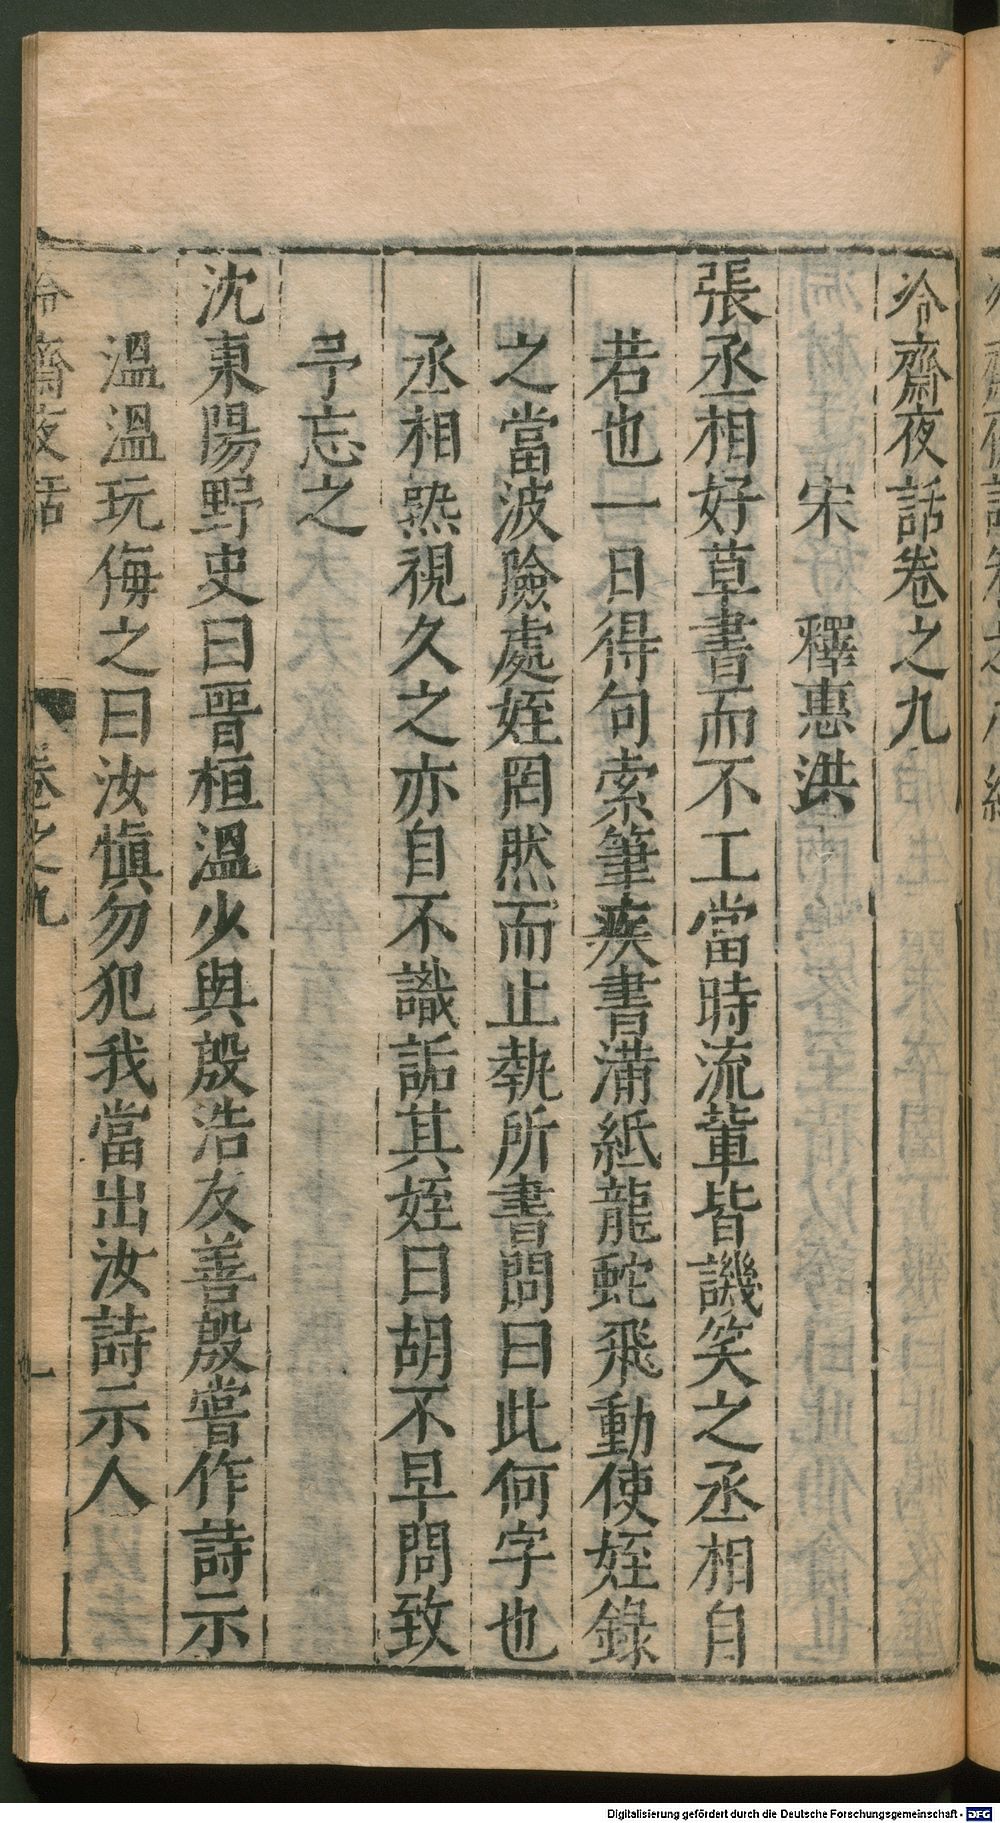 冷齋夜話卷之九
宋 釋惠洪
張丞相好草書而不工當時流輩皆譏笑之丞相自
若也一日得句索筆疾書滿紙龍蛇飛動使姪錄
之當波險處姪罔然而止執所書問曰此何字也
丞相熟視久之亦自不識詬其姪曰胡不早問致
予忘之
沈東陽野史曰晉桓溫少與殷浩友善殷嘗作詩示
溫溫玩侮之曰汝慎勿犯我當出汝詩示人
冷齋夜話 卷之九 一
Digitalisierung gefördert durch die Deutsche Forschungsgemeinschaft - DFG